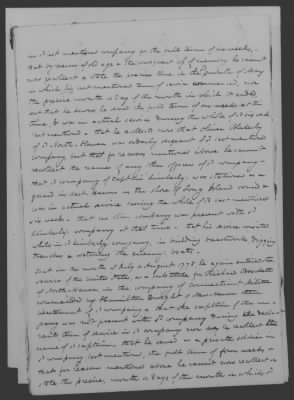 in sd last mentioned company for the full term of six weeks,
that by reason of old age & the consequent loss of memory he cannot
now recollect or state the precise time in the month of May
in which his last mentioned term of service commenced, nor
the precise month & day of the month in which it ended,
but that he served the full term of six weeks at this
time, & was in actual service during the whole of sd six weeks
last mentioned, that he recollects now that Oliver Blakesley
of sd North Haven was orderly sergeant of sd last mentioned
company but that for reasons mentioned above he cannot
recollect the names of any other officers of sd company
that sd company of Captain Kimberly, was stationed as a
guard in East Haven on the shore of Long Island Sound &
was in actual service during the whole of sd last mentioned
six weeks, that no other company was present with sd
Kimberlys company at that time, that his service consisted
while in sd Kimberly company, in building breastworks, digging
trenches & watching the enemys boats
That in the month of July or August 1778 he again entered the
service of the United States, as a substitute for Richard Brockett
of North Haven, in the company of Connecticut Militia
commanded by Hamilton Dwight of New Haven
Lieutenant of sd company & that the Captain of the com-
pany was not present with sd company during the declar-
ants term of service in sd company nor does he recollect the
name of sd captain, that he served as a private soldier in
sd company last mentioned, the full term of four weeks
that for reasons mentioned above he cannot now recollect or
state the precise month or days of the month in which sd